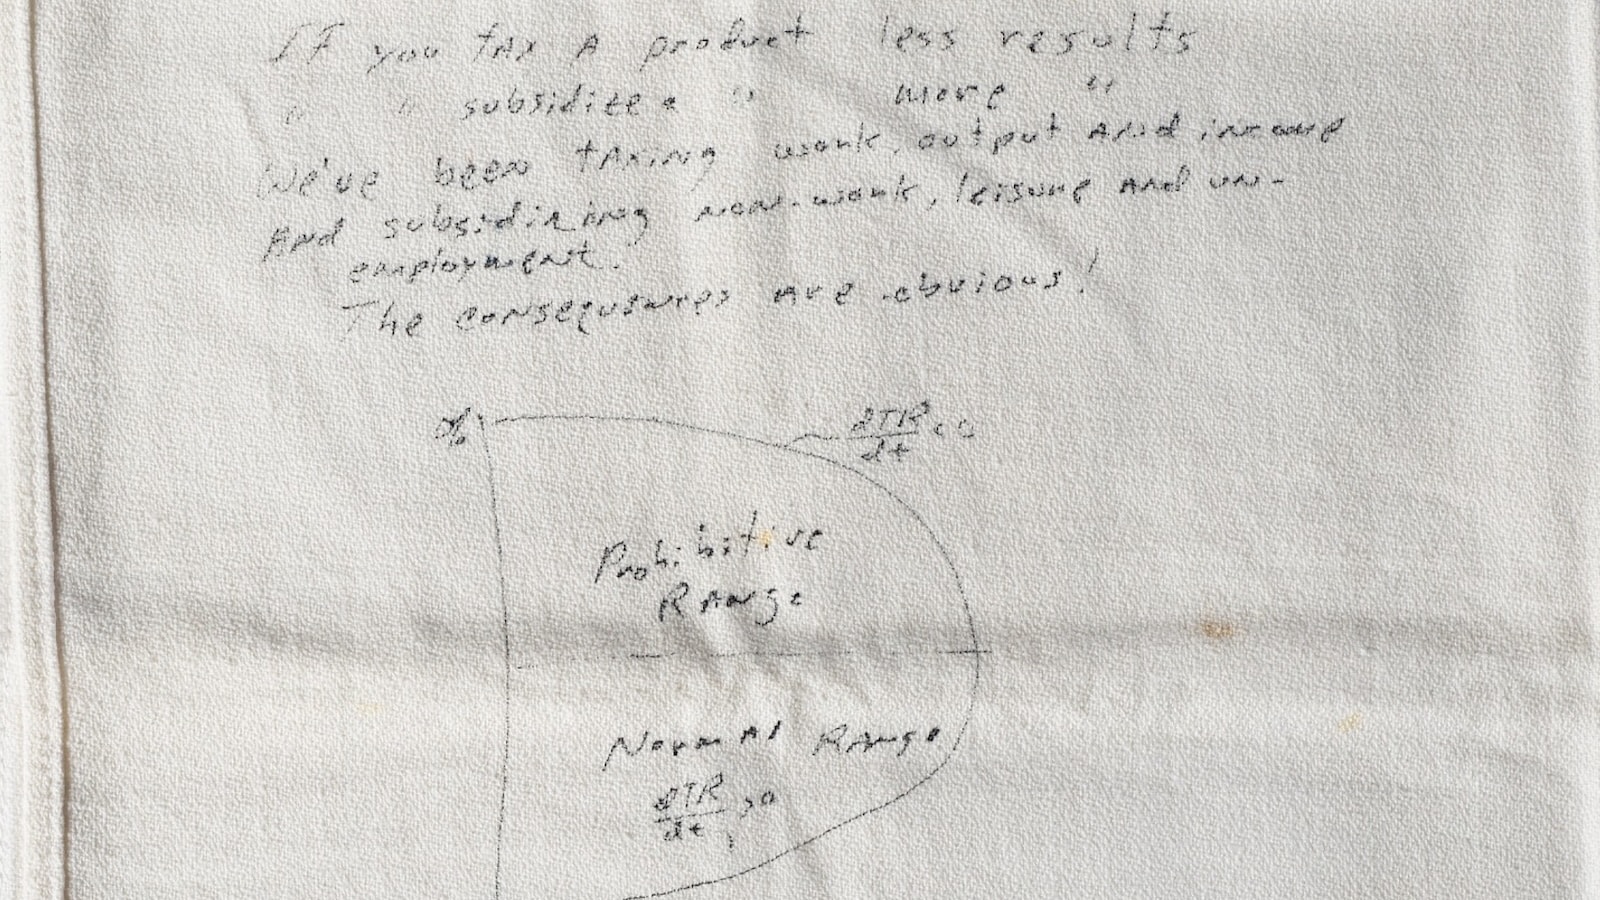 If you tax a product less results
" " subsidize a " more "
We've been taxing work, output and income
And subsidizing non-work, leisure and un-
employment.
The consequences are obvious!
%
dTR/dt < 0
Prohibitive
Range
Normal Range
dTR/dt > 0